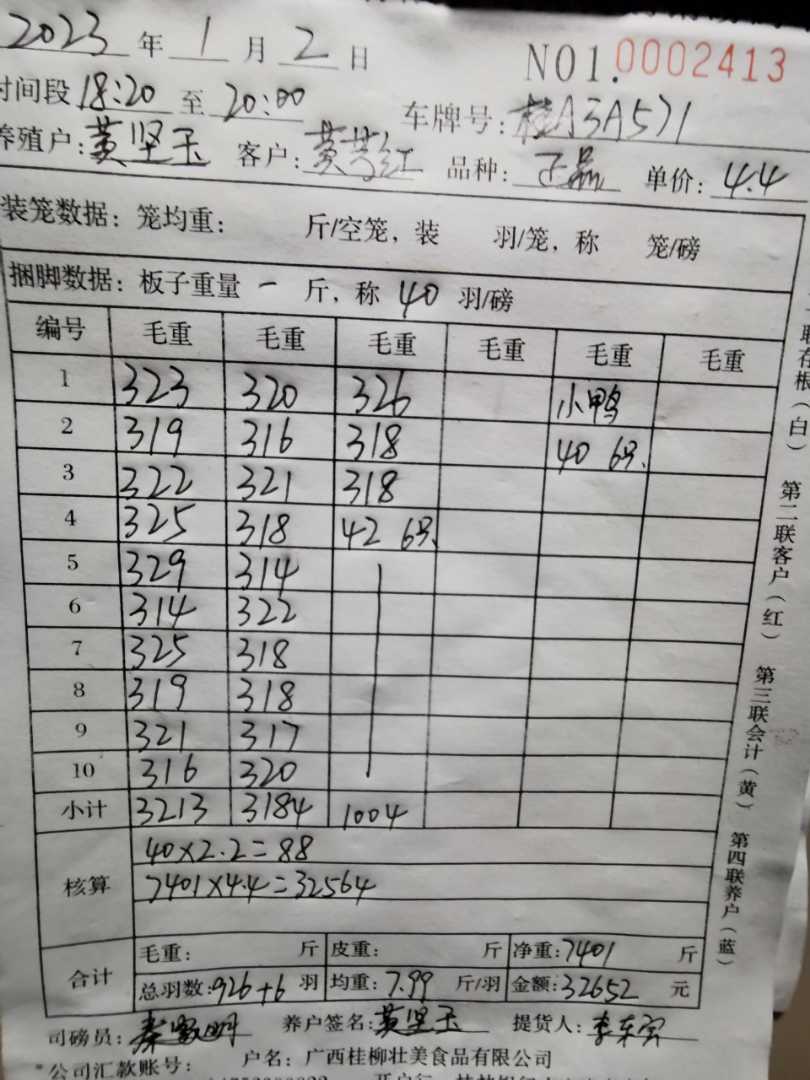 2023 年 1 月 2 日
NO1.0002413
时间段 18:20 至 20:00 车牌号: 桂A3A571
养殖户: 黄坚玉 客户: 黄 红 品种: 正品 单价: 4.4
装笼数据: 笼均重: 斤/空笼, 装 羽/笼, 称 笼/磅
捆脚数据: 板子重量 一 斤, 称 40 羽/磅
编号 毛重 毛重 毛重 毛重 毛重 毛重
1 323 320 326 小鸭
2 319 316 318 40 6只
3 322 321 318
4 325 318 42 6只
5 329 314
6 314 322
7 325 318
8 319 318
9 321 317
10 316 320
小计 3213 3184 1004
核算 40×2.2=88
7401×4.4=32564
合计 毛重: 斤 皮重: 斤 净重: 7401 斤
总羽数: 926+6 羽 均重: 7.99 斤/羽 金额: 32652 元
司磅员: 秦 明 养户签名: 黄坚玉 提货人: 李东
*公司汇款账号: 户名: 广西桂柳壮美食品有限公司
联存根(白) 第二联客户(红) 第三联会计(黄) 第四联养户(蓝)